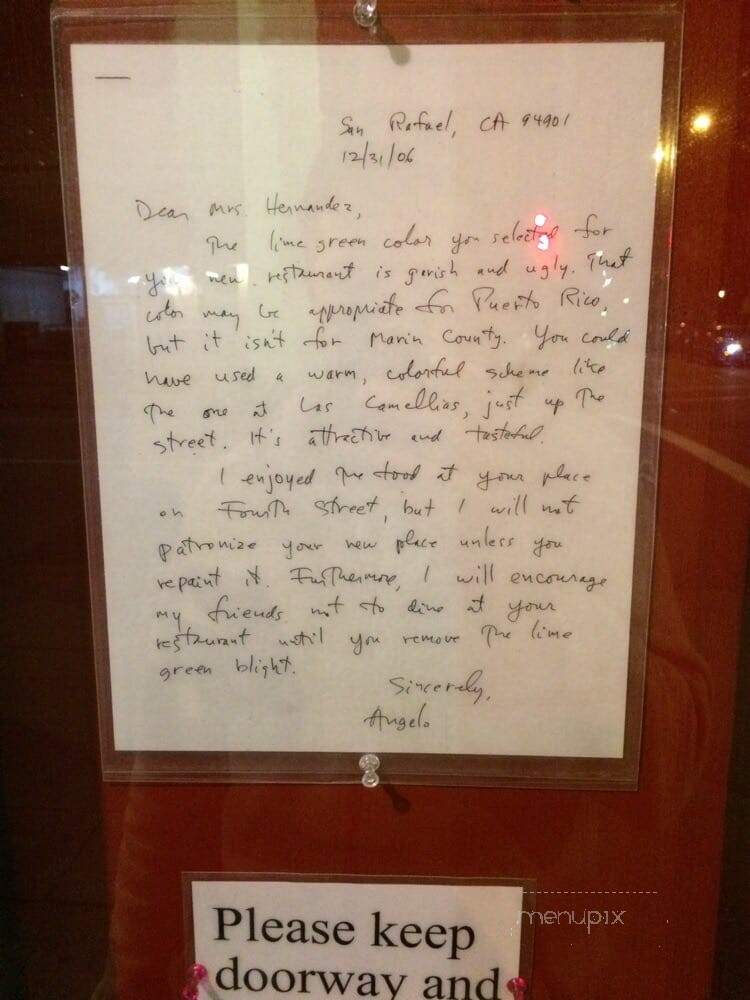 San Rafael, CA 94901
12/31/06
Dear Mrs. Hernandez,
The lime green color you selected for
your new restaurant is garish and ugly. That
color may be appropriate for Puerto Rico,
but it isn't for Marin County. You could
have used a warm, colorful scheme like
the one at Las Camellias, just up the
street. It's attractive and tasteful.
I enjoyed the food at your place
on Fourth Street, but I will not
patronize your new place unless you
repaint it. Furthermore, I will encourage
my friends not to dine at your
restaurant until you remove the lime
green blight.
Sincerely,
Angelo
Please keep
doorway and
menupix